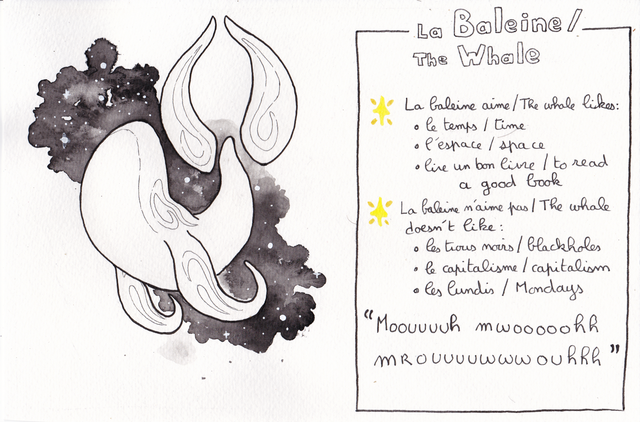 La Baleine/
The Whale
La baleine aime/The whale likes:
• le temps / time
• l'espace / space
• lire un bon livre / to read
a good book
La baleine n'aime pas/The whale
doesn't like:
• les trous noirs / blackholes
• le capitalisme / capitalism
• les lundis / Mondays
"Moouuuuh mwooooohh
mrouuuuwwwouhhh"